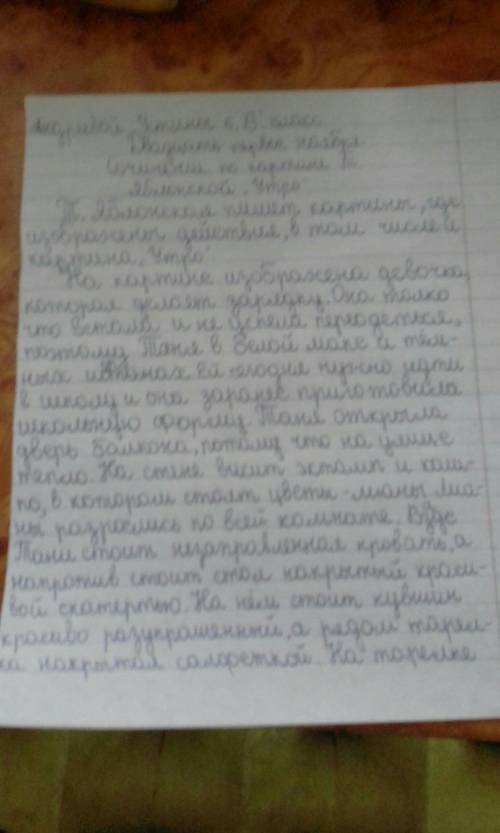 Андреевой Устины 6 „В" класс
Двадцать первое ноября
Сочинение по картине Т.
Яблонской „Утро"
Т. Яблонская пишет картины, где
изображены действия, в том числе и
картина „Утро".
На картине изображена девочка,
которая делает зарядку. Она толко
что встала и не успела переодеться,
поэтому Таня в белой маке и тём-
ных штанах. Ей сегодня нужно идти
в школу и она заранее приготовила
школьную форму. Таня открыла
дверь балкона, потому что на улице
тепло. На стене висит эстамп и каш-
по, в котором стоят цветы - лианы. Лиа-
ны разрослись по всей комнате.
Тани стоит незаправленная кровать, а
напротив стоит стол накрытый краси-
вой скатертью. На нём стоит кувшин
красиво разукрашенный, а рядом тарел-
ка накрытая салфеткой. На тарелке